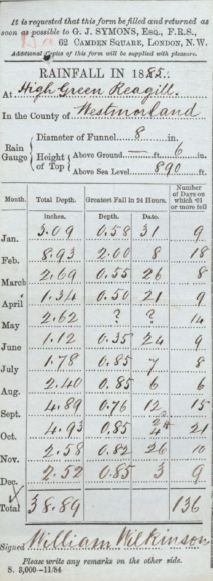 It is requested that this form be filled and returned as
soon as possible to G. J. SYMONS, ESQ., F.R.S.,
62 CAMDEN SQUARE, LONDON, N.W.
Additional Copies of this form will be supplied with pleasure.
RAINFALL IN 1885.
At High Green Reagill.
In the County of Westmorland
Rain Gauge
Diameter of Funnel 8 in.
Height of Top
Above Ground — ft. 6 in.
Above Sea Level 890 ft.
Month. Total Depth. Greatest Fall in 24 Hours. Date. Number of Days on which ·01 or more fell
inches. inches.
Jan. 3.09 0.58 31 9
Feb. 8.93 2.00 8 18
March 2.69 0.55 26 8
April 1.34 0.50 21 9
May 2.62 ? ? 14
June 1.12 0.35 24 9
July 1.78 0.85 7 8
Aug. 2.40 0.85 6 6
Sept. 4.89 0.76 12 15
Oct. 4.93 0.85 21
Nov. 2.58 0.82 26 10
Dec. 2.52 0.85 3 9
Total 38.89 136
Signed William Wilkinson
Please write any remarks on the other side.
S. 3,000.—11/84